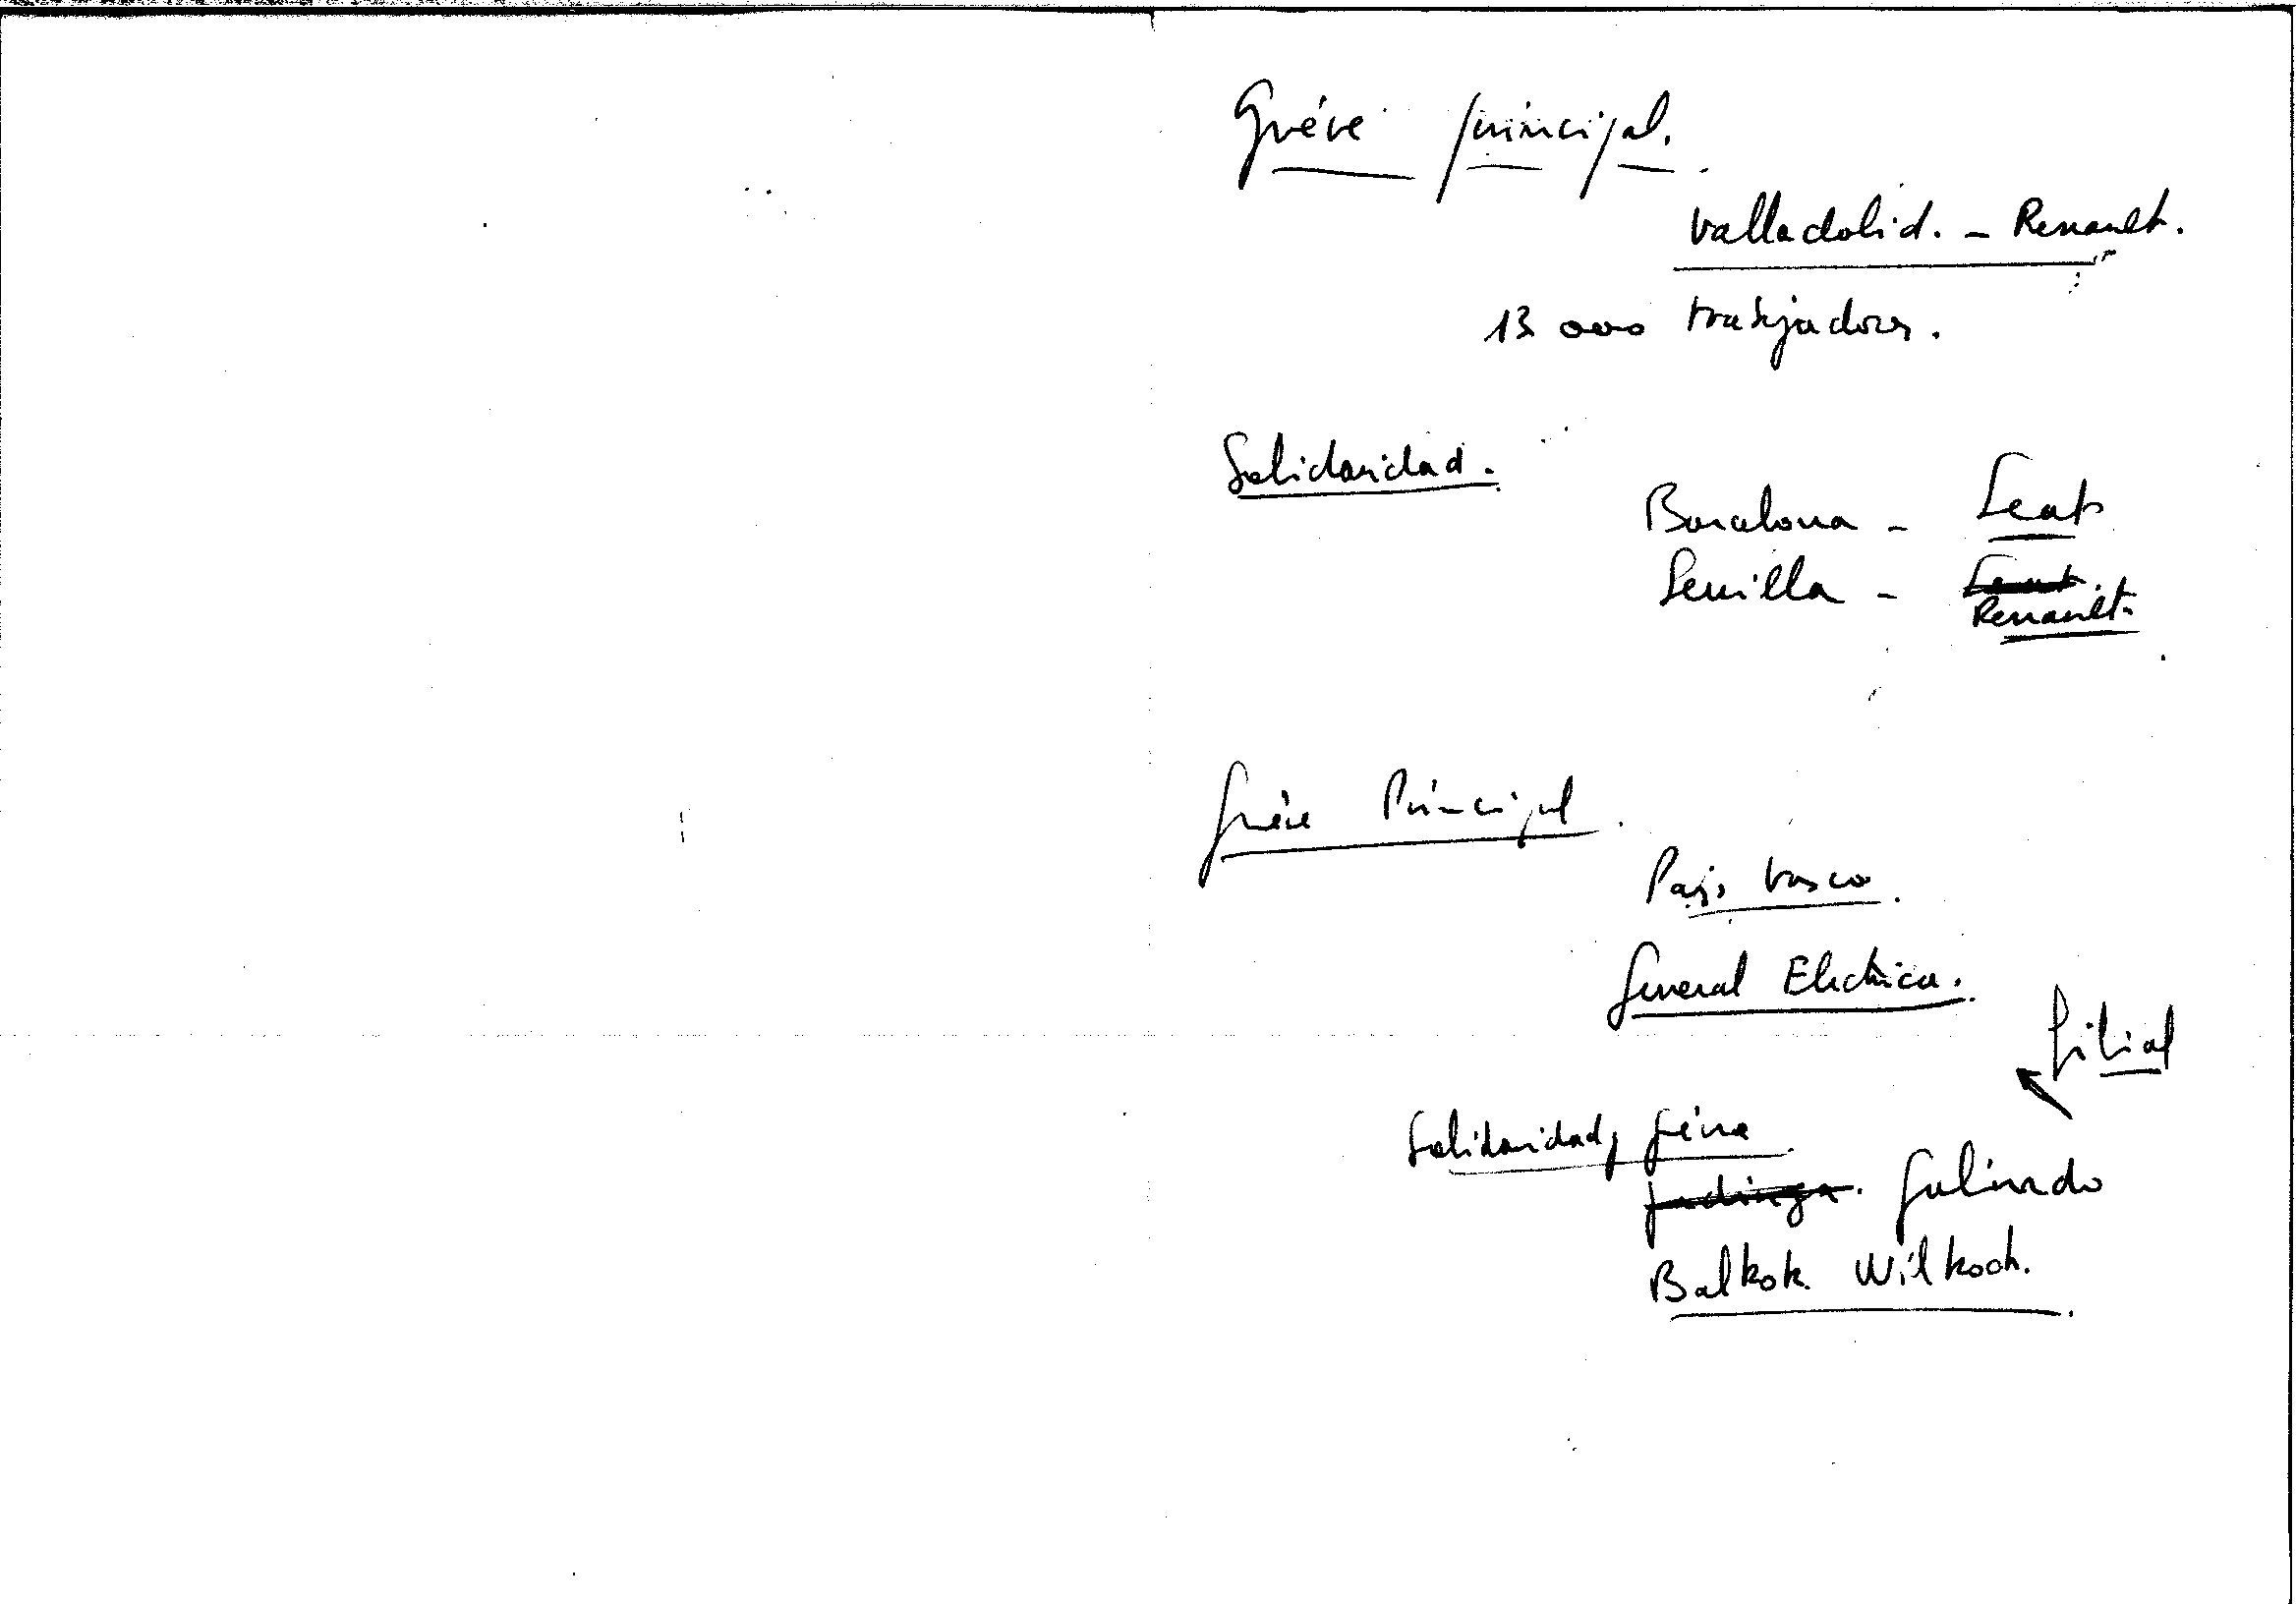 Gréve principal.
Valladolid. - Renault.
13 000 trabajadores.
Solidaridad.
Barcelona - Seat
Sevilla - Seat.
Renault
Gréve Principal.
Pais Vasco.
General Electrica.
filial
Solidaridad, Géna
Galindo
Balkok Wilkoch.